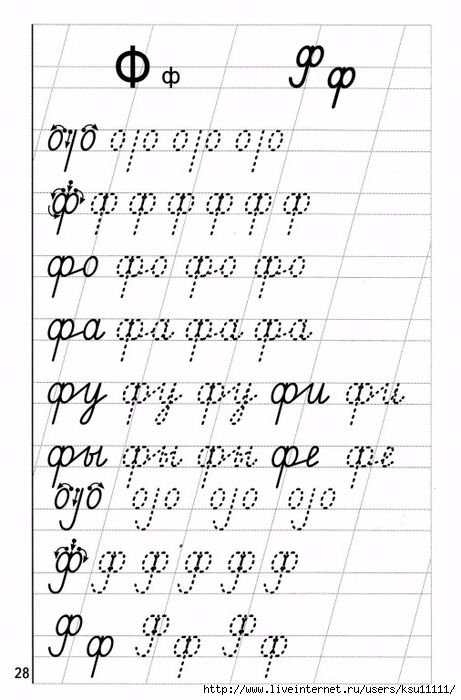 Ф ф Ф ф
о/о о/о о/о о/о
ф ф ф ф ф ф ф
фо фо фо фо
фа фа фа фа
фу фу фу фи фи
фы фы фы фе фе
Ф Ф Ф Ф Ф Ф
Ф ф Ф ф Ф ф
28
http://www.liveinternet.ru/users/ksu11111/